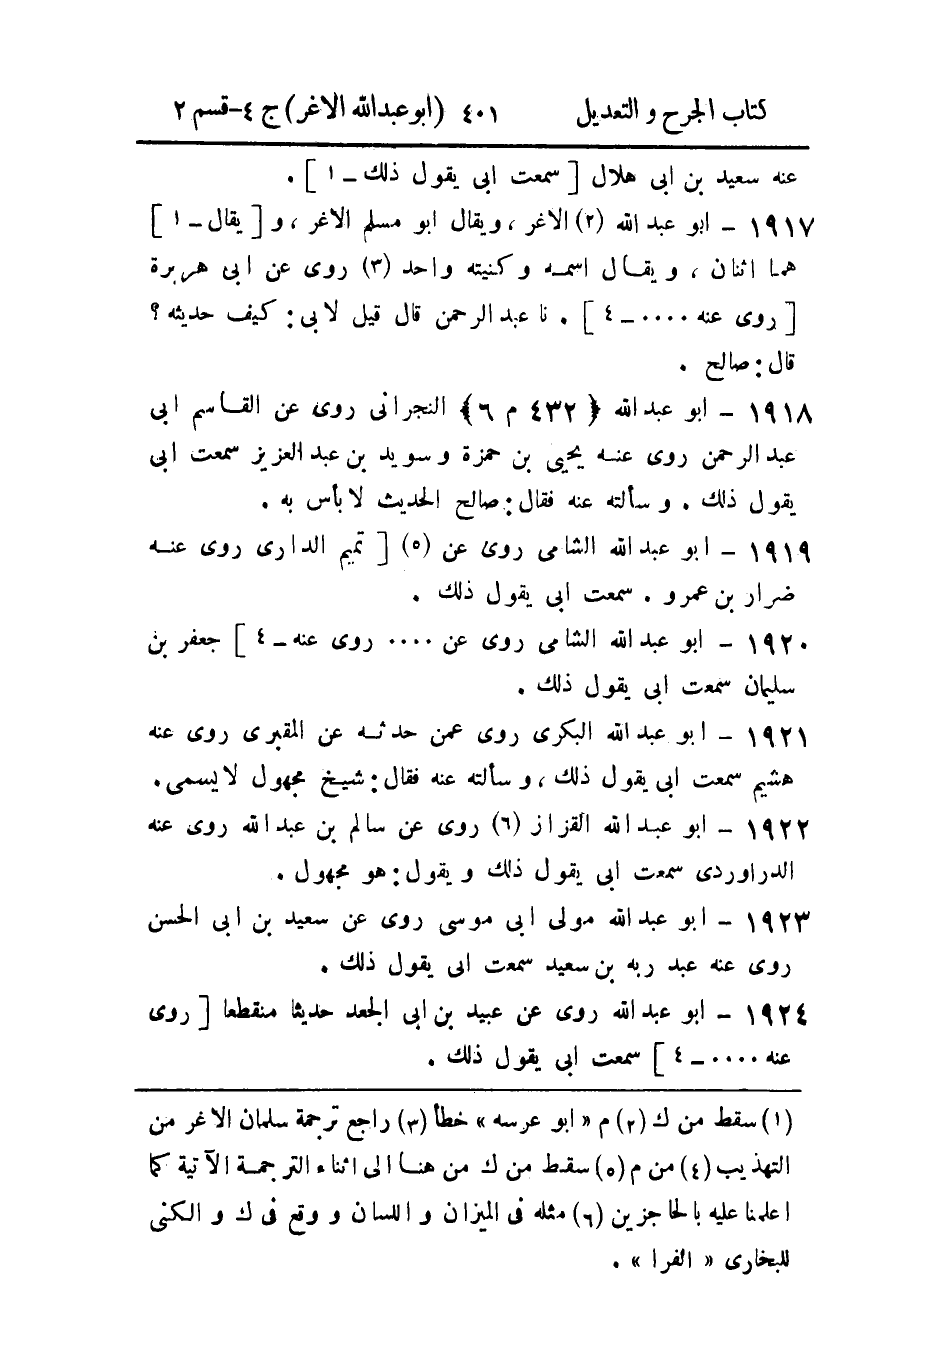 كتاب الجرح و التعديل ٤٠١ (ابو عبدالله الاغر) ج ٤-قسم ٢
عنه سعيد بن ابى هلال [ سمعت ابى يقول ذلك - ١ ] .
١٩١٧ - ابو عبد الله (٢) الاغر ، ويقال ابو مسلم الاغر ، و [ يقال - ١ ]
هما اثنان ، و يقال اسمه و كنيته واحد (٣) روى عن ابى هريرة
[ روى عنه ٠٠٠٠ - ٤ ] . نا عبد الرحمن قال قيل لابى : كيف حديثه ؟
قال : صالح .
١٩١٨ - ابو عبد الله { ٤٣٢ م ٦ } النجرانى روى عن القاسم ابى
عبد الرحمن روى عنه يحيى بن حمزة و سويد بن عبد العزيز سمعت ابى
يقول ذلك . و سألته عنه فقال : صالح الحديث لا بأس به .
١٩١٩ - ابو عبد الله الشامى روى عن (٥) [ تميم الدارى روى عنه
ضرار بن عمرو . سمعت ابى يقول ذلك .
١٩٢٠ - ابو عبد الله الشامى روى عن ٠٠٠٠ روى عنه - ٤ ] جعفر بن
سليمان سمعت ابى يقول ذلك .
١٩٢١ - ابو عبد الله البكرى روى عمن حدثه عن المقبرى روى عنه
هشيم سمعت ابى يقول ذلك ، و سألته عنه فقال : شيخ مجهول لا يسمى .
١٩٢٢ - ابو عبد الله القزاز (٦) روى عن سالم بن عبد الله روى عنه
الدراوردى سمعت ابى يقول ذلك و يقول : هو مجهول .
١٩٢٣ - ابو عبد الله مولى ابى موسى روى عن سعيد بن ابى الحسن
روى عنه عبد ربه بن سعيد سمعت ابى يقول ذلك .
١٩٢٤ - ابو عبد الله روى عن عبيد بن ابى الجعد حديثا منقطعا [ روى
عنه ٠٠٠٠ - ٤ ] سمعت ابى يقول ذلك .
(١) سقط من ك (٢) م « ابو عرسه » خطأ (٣) راجع ترجمة سلمان الاغر من
التهذيب (٤) من م (٥) سقط من ك من هنا الى اثناء الترجمة الآتية كما
اعلمنا عليه بالحاجزين (٦) مثله فى الميزان و اللسان و وقع فى ك و الكنى
للبخارى « الفرا » .